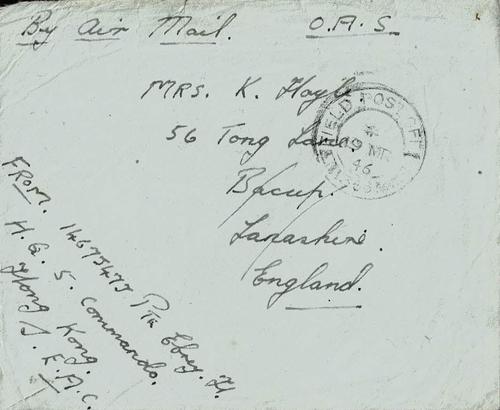 By Air Mail. O.A.S.
MRS. K. Hoyle
56 Tong Lane.
Bacup.
Lancashire.
England.
FIELD POST OFFICE
19 MR
46
FROM. 14675473 Pte Ebrey. H.
H.Q. 5. Commando.
Hong Kong.
S.E.A.C.